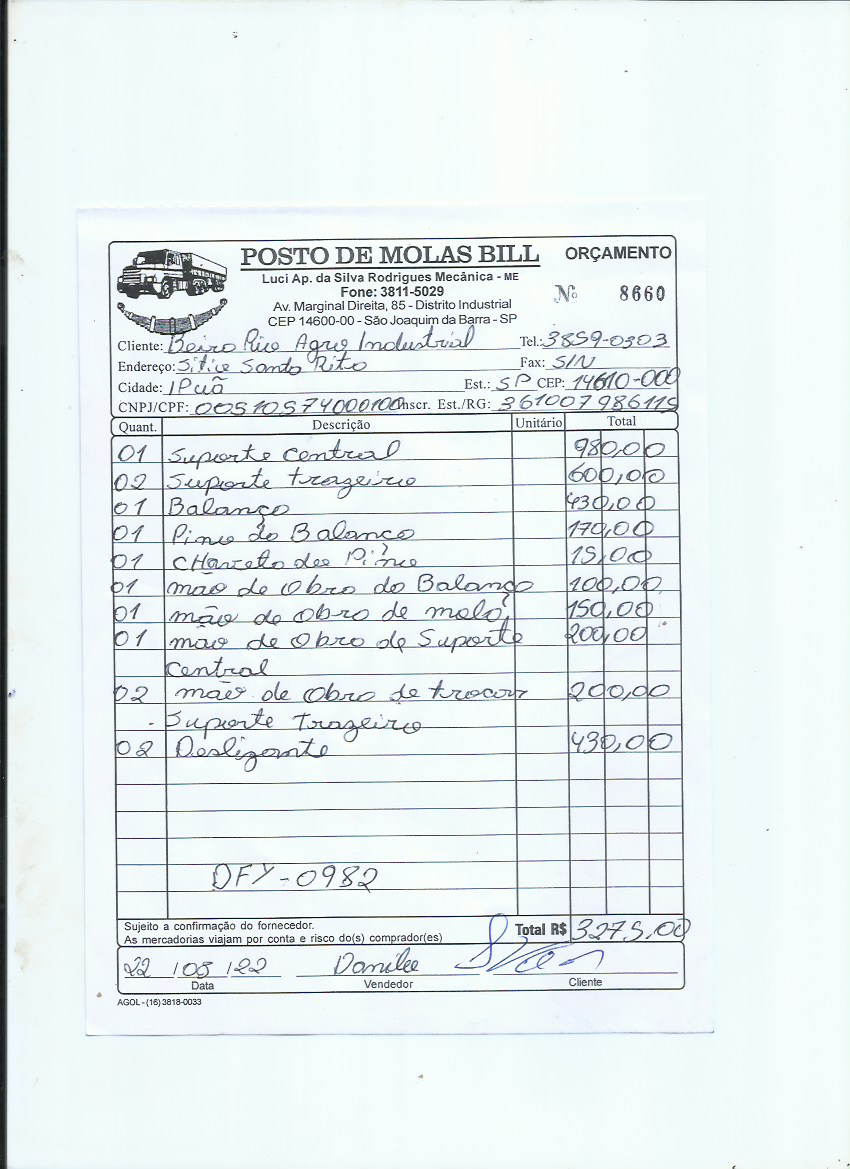 POSTO DE MOLAS BILL ORÇAMENTO
Luci Ap. da Silva Rodrigues Mecânica - ME
Fone: 3811-5029
Nº 8660
Av. Marginal Direita, 85 - Distrito Industrial
CEP 14600-00 - São Joaquim da Barra - SP
Cliente: Beiro Rio Agro Industrial Tel.: 3859-0303
Endereço: Sitio Santo Rito Fax: S/N
Cidade: IPuã Est.: SP CEP: 14610-000
CNPJ/CPF: 00510574000100 Inscr. Est./RG: 361007986115
Quant. Descrição Unitário Total
01 Suporte central 980,00
02 Suporte trazeiro 600,00
01 Balanço 430,00
01 Pino do Balanco 170,00
01 Pino 15,00
01 mão de Obro do Balanço 100,00
01 mão de Obro de mola 150,00
01 mão de Obro de Suporte 200,00
Central
02 mão de Obro de trocar 200,00
- Suporte trazeiro
02 Deslizante 430,00
DFY-0982
Sujeito a confirmação do fornecedor.
As mercadorias viajam por conta e risco do(s) comprador(es) Total R$ 3275,00
22 / 03 / 22 Danilo
Data Vendedor Cliente
AGOL - (16) 3818-0033